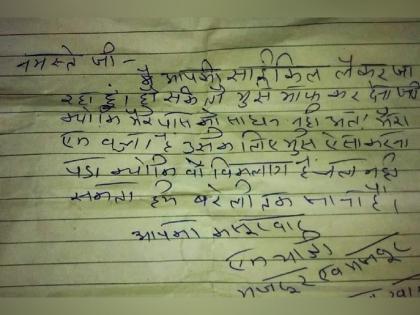 नमस्ते जी -
मैं आपकी साईकिल लेकर जा
रहा हूं। हो सके तो मुझे माफ कर देना जी
क्योंकि मेरे पास कोई साधन नही है। मेरा
एक बच्चा है उसके लिए मुझे ऐसा करना
पड़ा क्योंकि वो विकलांग है चल नही
सकता हमे बरेली तक जाना है।
आपका कसूरवार
एक यात्री
मजदूर एवं मजबूर